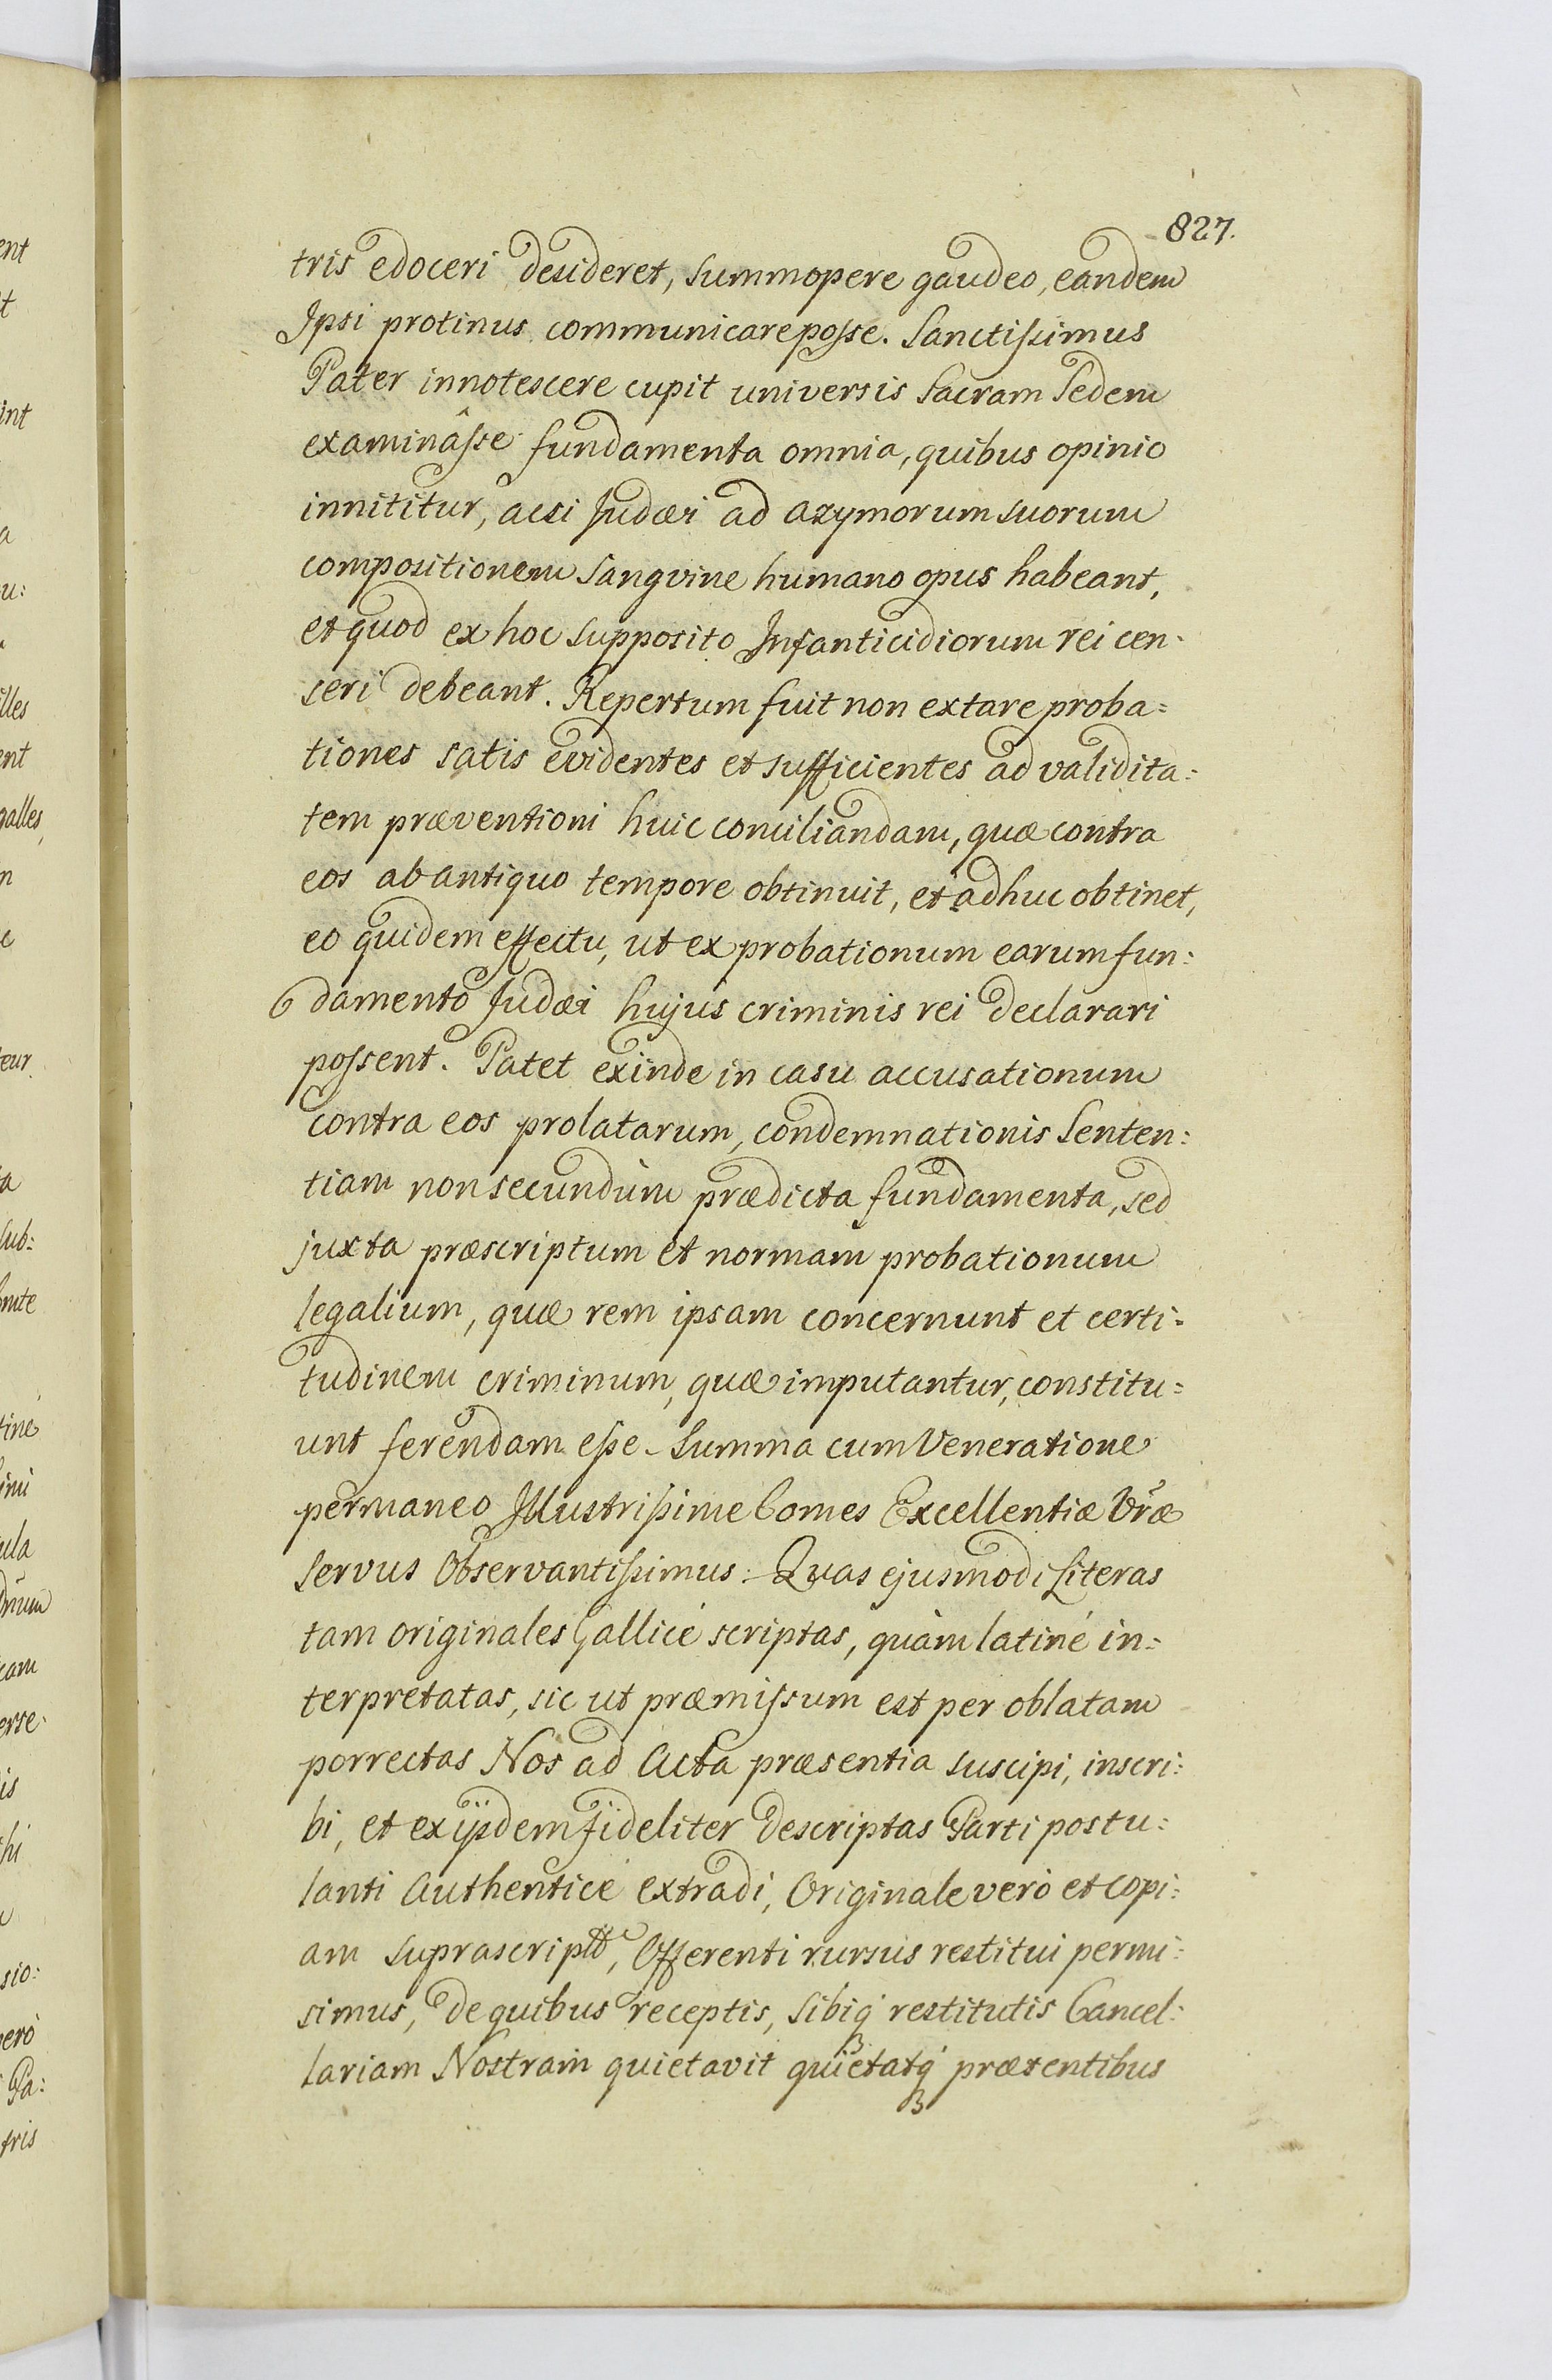 827.
tris edoceri desideret, summopere gaudeo, eandem
Ipsi protinus communicare posse. Sanctissimus
Pater innotescere cupit universis Sacram Sedem
examinâsse fundamenta omnia, quibus opinio
innititur, acsi Judæi ad azymorum suorum
compositionem sangvine humano opus habeant,
et quod ex hoc supposito Infanticidiorum rei cen:
seri debeant. Repertum fuit non extare proba=
tiones satis evidentes et sufficientes ad validita:
tem præventioni huic conciliandam, quæ contra
eos ab antiquo tempore obtinuit, et adhuc obtinet,
eo quidem effectu, ut ex probationum earum fun:
damento Judæi hujus criminis rei declarari
possent. Patet exinde in casu accusationum
contra eos prolatarum, condemnationis Senten:
tiam non secundùm prædicta fundamenta, sed
juxta præscriptum et normam probationum
legalium, quæ rem ipsam concernunt et certi=
tudinem criminum, quæ imputantur, constitu=
unt ferendam esse. Summa cum Veneratione
permaneo Illustrissime Comes Excellentiæ Vræ
Servus Observantissimus: Quas ejusmodi Literas
tam originales Gallicé scriptas, quàm latiné in=
terpretatas, sic ut præmissum est per oblatam
porrectas Nos ad Acta præsentia suscipi, inscri:
bi, et ex ijsdem fideliter descriptas Parti postu:
lanti Authenticé extradi, Originale verò et copi:
am suprascript, Offerenti rursus restitui permi:
simus, de quibus receptis, sibiq́ restitutis Cancel:
lariam Nostram quietavit quietatq́ præsentibus
ent
t
int
a
u:
illes
ent
galles,
n
c
teur
ta
sub:
tine
ula
cam
erse
is
hi
sio:
verò
Pa:
tris